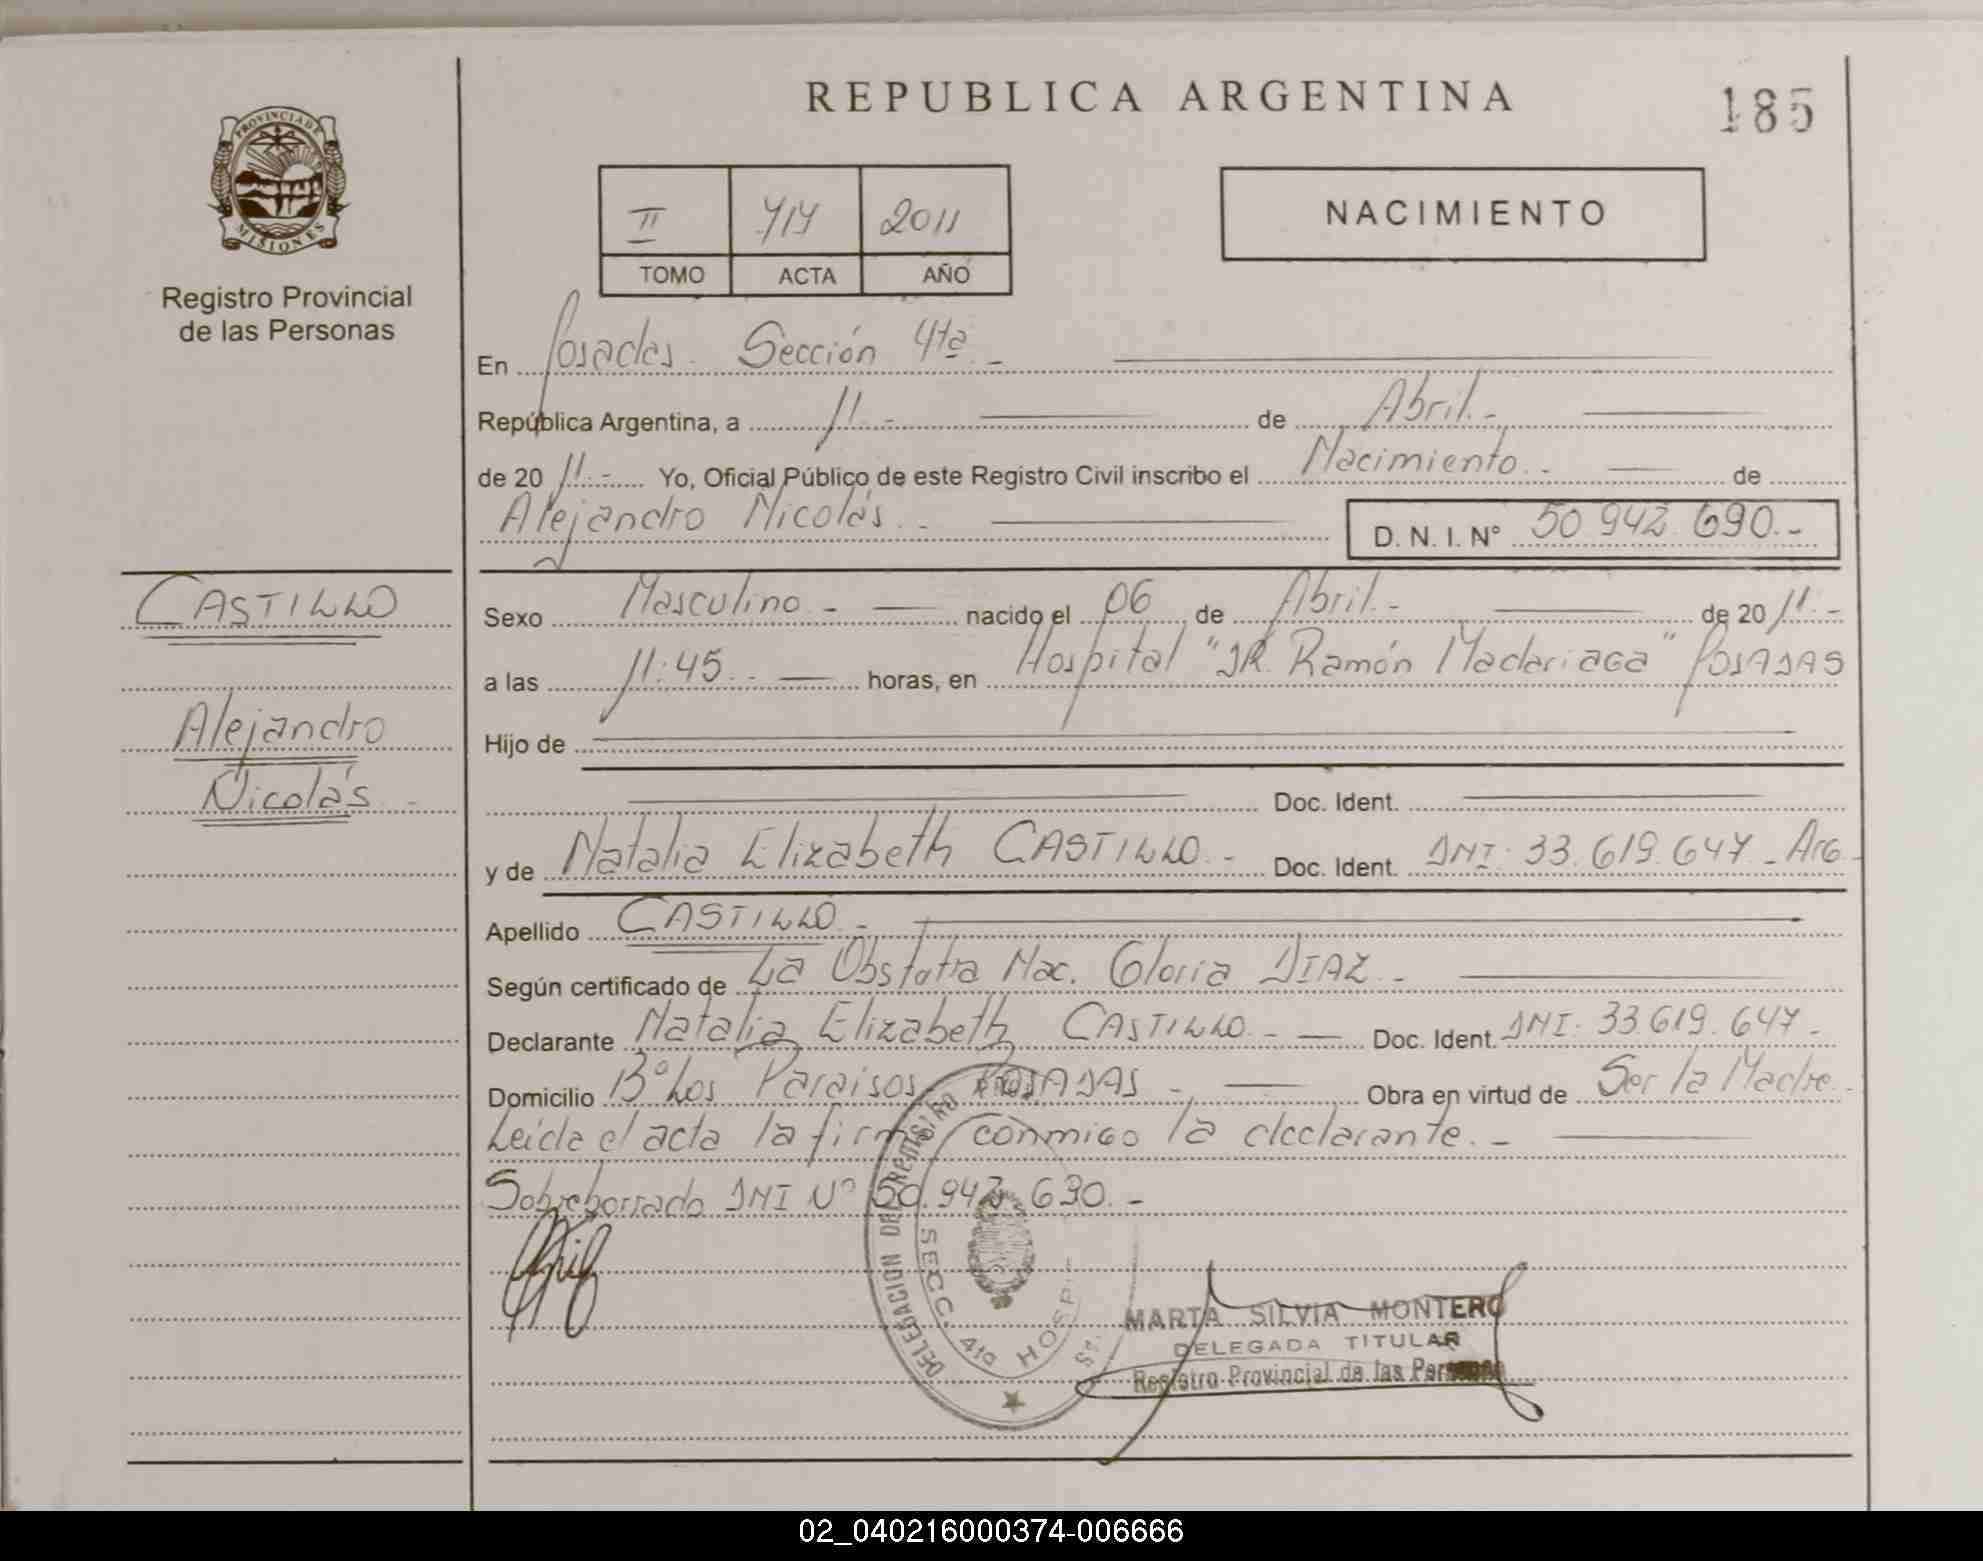 REPUBLICA ARGENTINA
185
PROVINCIA DE
MISIONES
Registro Provincial
de las Personas
II 717 2011
TOMO ACTA AÑO
NACIMIENTO
En Posadas - Sección 4ta -
República Argentina, a 11.- de Abril.-
de 20 11.- Yo, Oficial Público de este Registro Civil inscribo el Nacimiento.- de
Alejandro Nicolás.- D. N. I. N° 50.942.690.-
CASTILLO
Alejandro
Nicolás.-
Sexo Masculino.- nacido el 06 de Abril.- de 20 11.-
a las 11:45.- horas, en Hospital "DR. Ramón Madariaga" POSADAS
Hijo de
Doc. Ident.
y de Natalia Elizabeth CASTILLO.- Doc. Ident. DNI: 33.619.647 - Arg.-
Apellido CASTILLO.-
Según certificado de La Obstetra Nac. Gloria DIAZ.-
Declarante Natalia Elizabeth CASTILLO.- Doc. Ident. DNI: 33.619.647.-
Domicilio B° Los Paraisos - POSADAS - Obra en virtud de Ser la Madre.-
Leída el acta la firma conmigo la declarante.-
Sobreborrado DNI N° 50.942.690.-
DELEGACION DEL REGISTRO
SECC. 4ta HOSP.
MARTA SILVIA MONTERO
DELEGADA TITULAR
Registro Provincial de las Personas
02_040216000374-006666